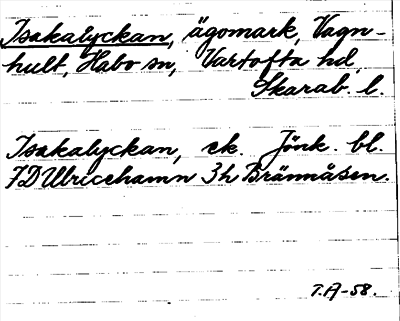 Isakalyckan, ägomark, Vagn-
hult, Habo sn, Vartofta hd,
Skarab. l.
Isakalyckan, ek. Jönk. bl.
7D Ulricehamn 3h Brännåsen.
T.A-58.